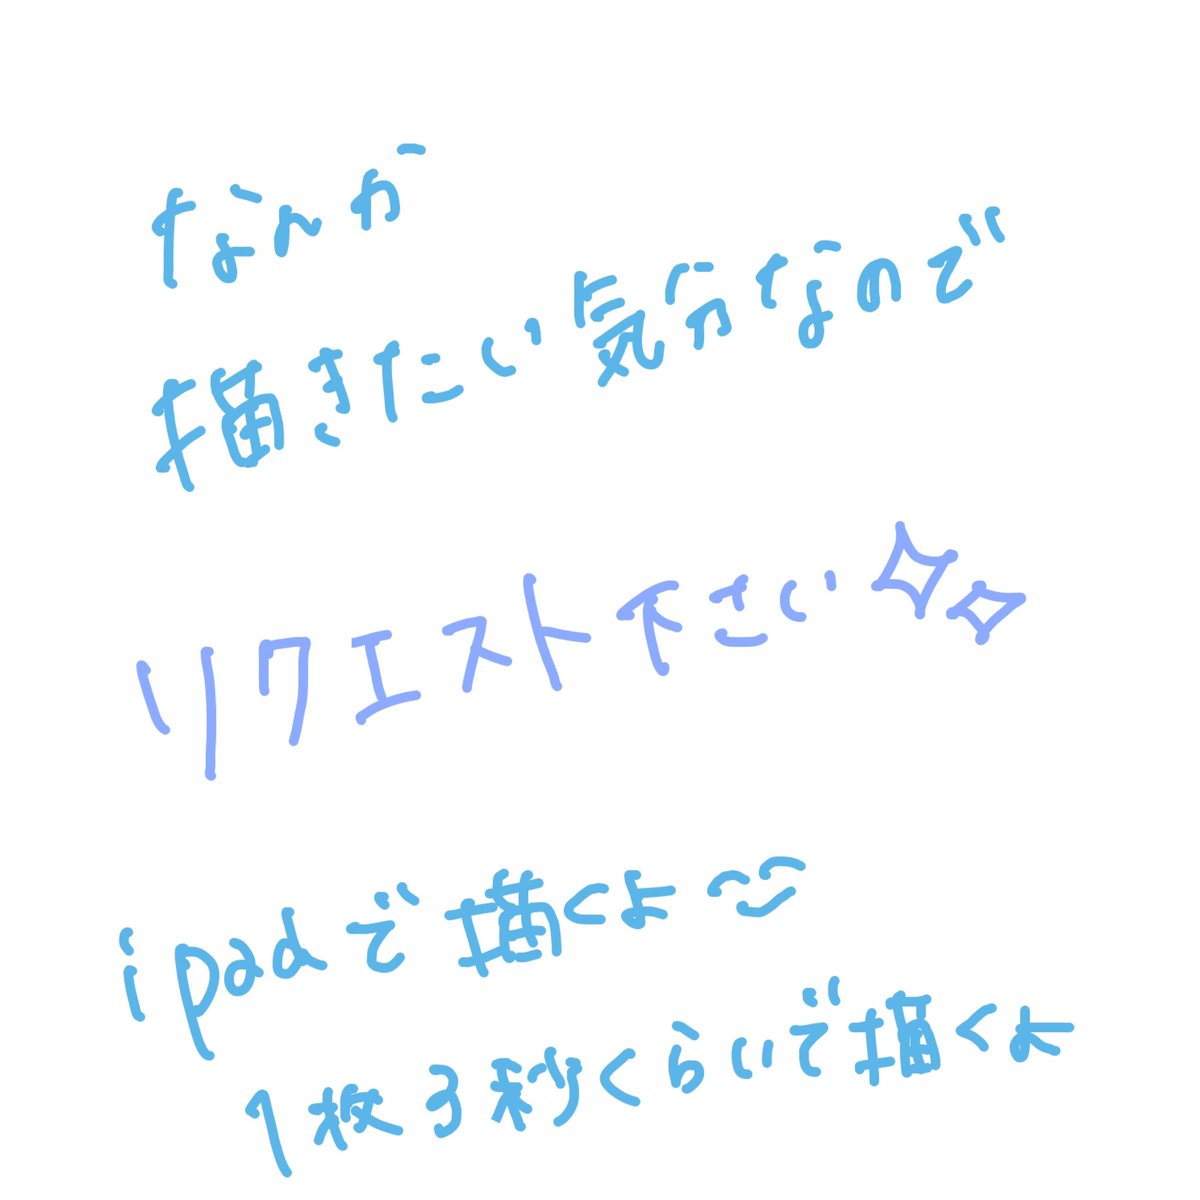 なんか
描きたい気分なので
リクエスト下さい
ipadで描くよ
1枚3秒くらいで描くよ